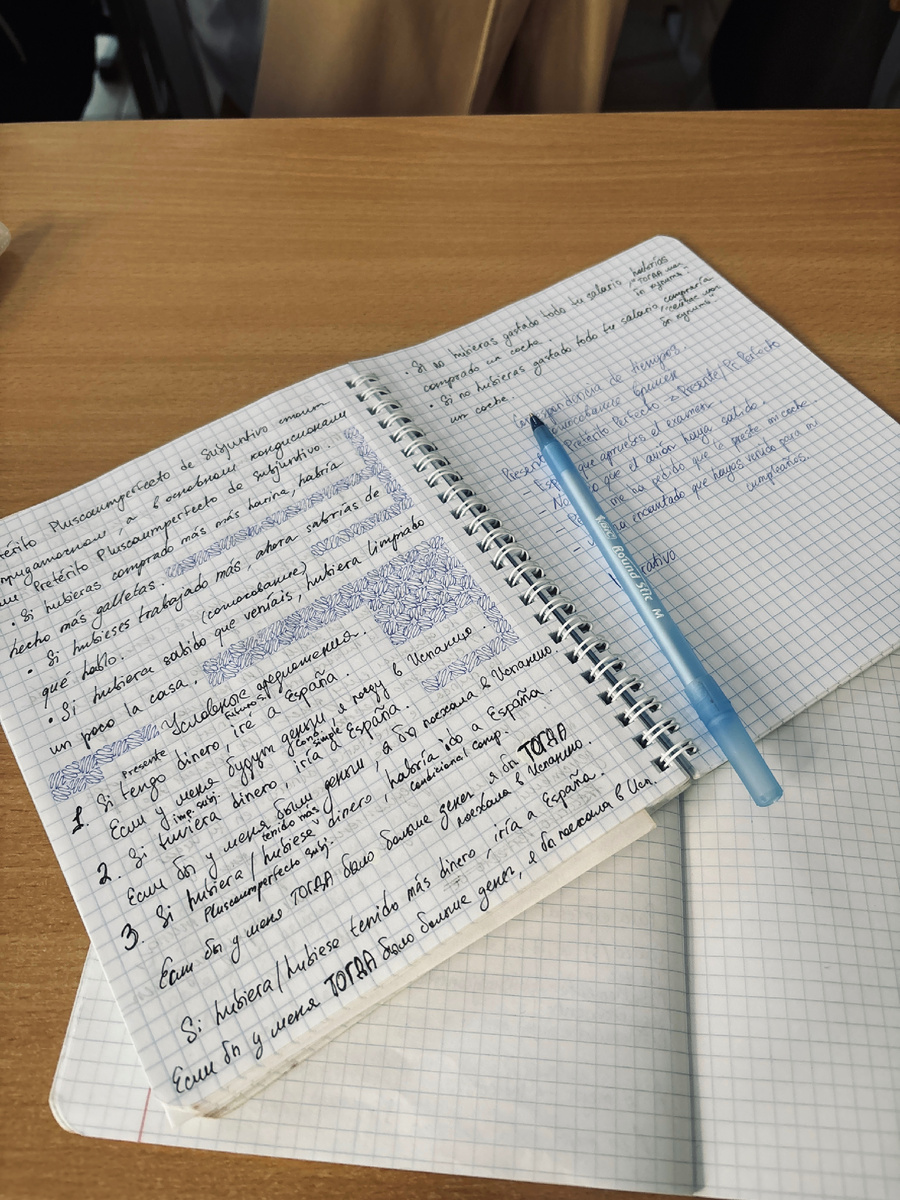 Pluscuamperfecto de subjuntivo
а в основном
Pretérito Pluscuamperfecto de subjuntivo.
• Si hubieras comprado más más harina, habría
hecho más galletas.
• Si hubieses trabajado más, ahora sabrías de
qué hablo. (сомневание)
• Si hubiera sabido que veníais, hubiera limpiado
un poco la casa.
Условные предложения.
Presente Futuro S.
1. Si tengo dinero, iré a España.
Если у меня будут деньги, я поеду в Испанию.
imp. subj. cond. simple
2. Si tuviera dinero, iría a España.
Если бы у меня были деньги, я бы поехала в Испанию.
tenido más
3. Si hubiera/hubiese dinero, habría ido a España.
Pluscuamperfecto subj. condicional comp.
Если бы у меня ТОГДА было больше денег, я бы ТОГДА
поехала в Испанию.
Si hubiera/hubiese tenido más dinero, iría a España.
Если бы у меня ТОГДА было больше денег, я бы поехала в Исп.
• Si no hubieras gastado todo tu salario habrías
"ТОГДА
comprado un coche. бы купить"
• Si no hubieras gastado todo tu salario compraría
"сейчас
un coche. бы купить"
de tiempos.
времен
Present Pretérito Perfecto → Presente/Pr. Perfecto
- que apruebes el examen.
- No que el avión haya salido.
me ha pedido que la preste mi coche
encantado que hayas venido para mi
cumpleaños.
BIC Round Stic M